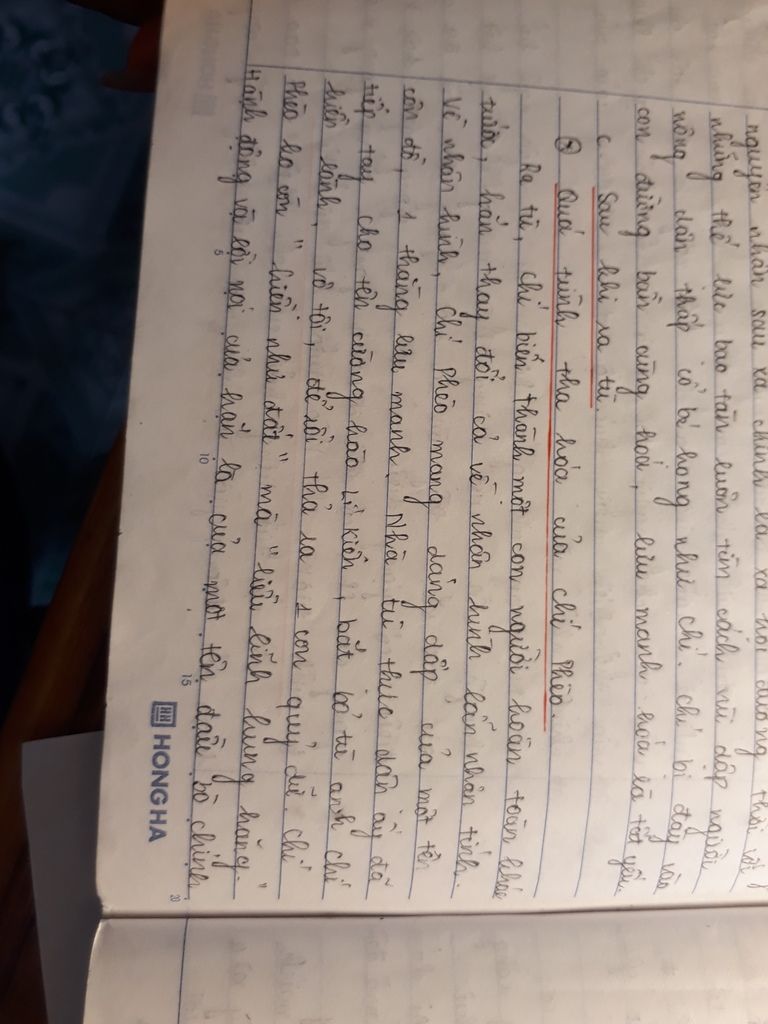 nguyên nhân sâu xa chính là xã hội đương thời với
những thế lực bạo tàn luôn tìm cách vùi dập người
nông dân thấp cổ bé họng như chí. chí bị đẩy vào
con đường bần cùng hoá, lưu manh hoá là tất yếu.
c. Sau khi ra tù.
* Quá trình tha hóa của chí Phèo.
Ra tù, chí biến thành một con người hoàn toàn khác
trước, hắn thay đổi cả về nhân hình lẫn nhân tính.
Về nhân hình, Chí Phèo mang dáng dấp của một tên
côn đồ, 1 thằng lưu manh. Nhà tù thực dân ấy đã
tiếp tay cho tên cường hào Lí Kiến, bắt bỏ tù anh chí
hiền lành, vô tội, để rồi thả ra 1 con quỷ dữ. chí
Phèo ko còn " hiền như đất " mà " liều lĩnh hung hăng. "
Hành động và lời nói của hắn là của một tên đầu bò chính
5
10
15
20
HONG HA